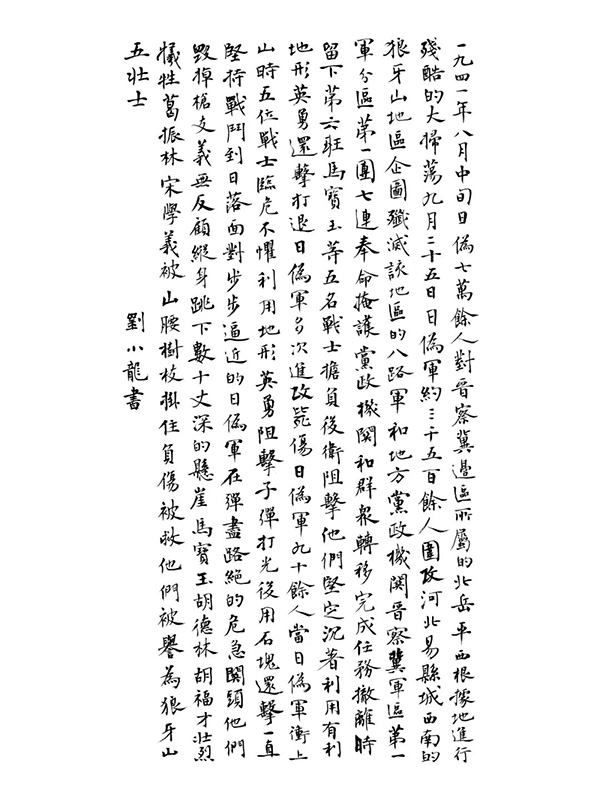 一九四一年八月中旬日偽七萬餘人對晉察冀邊區所屬的北岳平西根據地進行
殘酷的大掃蕩九月二十五日日偽軍約三千五百餘人圍攻河北易縣城西南的
狼牙山地區企圖殲滅該地區的八路軍和地方黨政機関晉察冀軍區第一
軍分區第一團七連奉命掩護黨政機関和群衆轉移完成任務撤離時
留下第六班馬寶玉等五名戰士擔負後衛阻擊他們堅定沉著利用有利
地形英勇還擊打退日偽軍多次進攻斃傷日偽軍九十餘人當日偽軍衝上
山時五位戰士臨危不懼利用地形英勇阻擊子彈打光後用石塊還擊一直
堅持戰鬥到日落面對步步逼近的日偽軍在彈盡路絕的危急関頭他們
毀掉槍支義無反顧縱身跳下數十丈深的懸崖馬寶玉胡德林胡福才壯烈
犧牲葛振林宋學義被山腰樹枝掛住負傷被救他們被譽為狼牙山
五壯士
劉小龍書